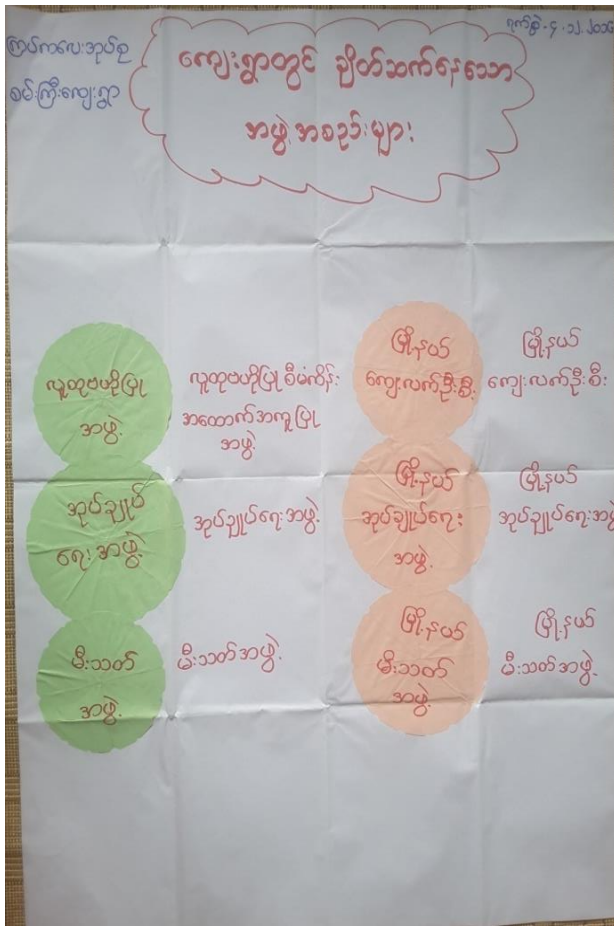 ကပ်ကလေးအုပ်စု
စမ်းကြီးကျေးရွာ
ရက်စွဲ - ၄ . ၁၂ . ၂၀၁၆
ကျေးရွာတွင် ချိတ်ဆက်နေသော
အဖွဲ့အစည်းများ
လူထုဗဟိုပြု
အဖွဲ့
လူထုဗဟိုပြု စီမံကိန်း
အထောက်အကူပြု
အဖွဲ့
မြို့နယ်
ကျေးလက်ဦးစီး
မြို့နယ်
ကျေးလက်ဦးစီး
အုပ်ချုပ်
ရေးအဖွဲ့
အုပ်ချုပ်ရေးအဖွဲ့
မြို့နယ်
အုပ်ချုပ်ရေး
အဖွဲ့
မြို့နယ်
အုပ်ချုပ်ရေးအဖွဲ့
မီးသတ်
အဖွဲ့
မီးသတ်အဖွဲ့
မြို့နယ်
မီးသတ်
အဖွဲ့
မြို့နယ်
မီးသတ်အဖွဲ့